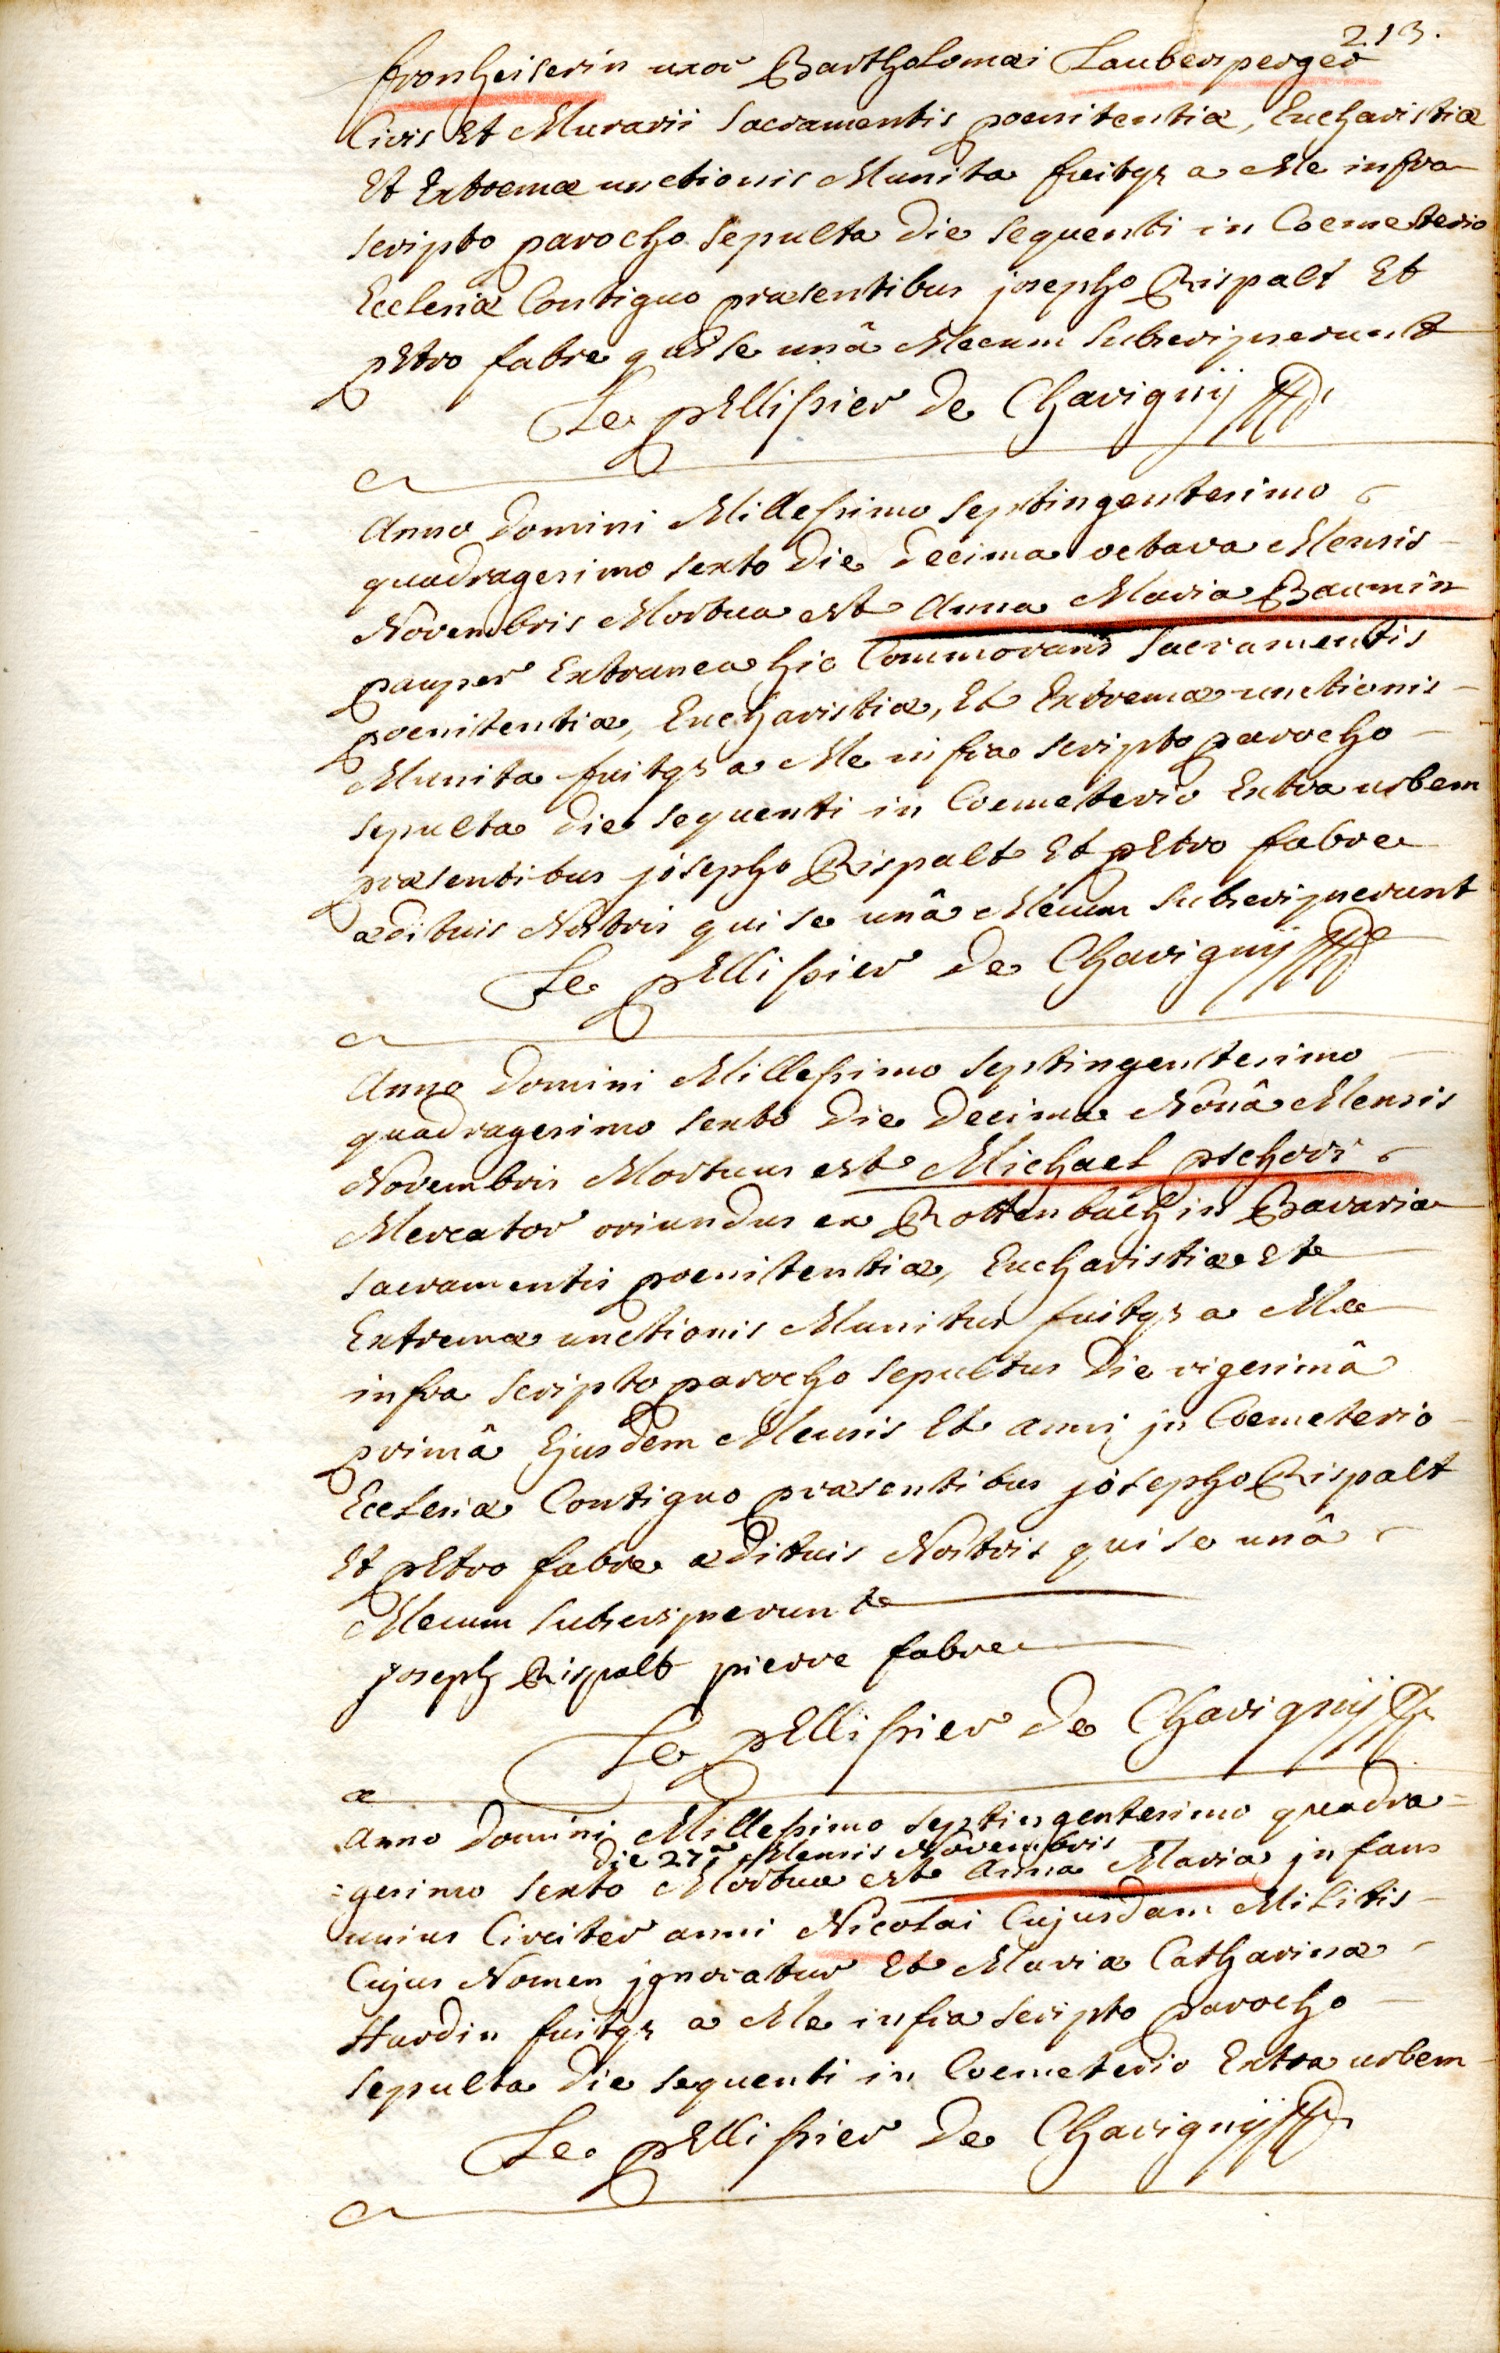 213.
fronheiserin uxor Bartholomæi Laubersperger
Civis Et Murarii sacramentis poenitentiæ, Eucharistiæ
Et Extremæ unctionis Munita fuitqz a Me infra
scripto parocho sepulta die sequenti in Coemeterio
Ecclesiæ Contiguo præsentibus josepho Rispalt Et
pEtro fabre qui se unâ Mecum subscripserunt
Le pEllissier de Chavignij
Anno Domini Millessimo septingentesimo
quadragesimo sexto die decima octava Mensis
Novembris Mortua est Anna Maria Baumin
pauper Extranea hic Commorans sacramentis
poenitentiæ, Eucharistiæ, Et Extremæ unctionis
Munita fuitqz a Me infra scripto parocho
sepulta die sequenti in Coemeterio Extra urbem
præsentibus josepho Rispalt Et pEtro fabre
ædituis Nostris qui se unâ Mecum subscripserunt
Le pEllissier de Chavignij
Anno Domini Millessimo septingentesimo
quadragesimo sexto die decima Nonâ Mensis
Novembris Mortuus est Michael pschorr
Mercator oriundus ex Rottenbuch in Bavaria
sacramentis poenitentiæ, Eucharistiæ Et
Extremæ unctionis Munitus fuitqz a Me
infra scripto parocho sepultus die vigesimâ
primâ Ejusdem Mensis Et anni in Coemeterio
Ecclesiæ Contiguo præsentibus josepho Rispalt
Et pEtro fabre ædituis Nostris qui se unâ
Mecum subscripserunt
joseph Rispalt pierre fabre
Le pEllissier de Chavignij
Anno Domini Millessimo septingentesimo quadra=
die 27a Mensis Novembris
=gesimo sexto Mortua est Anna Maria jnfans
unius Circiter anni Nicolai Cujusdam Militis
Cujus Nomen jgnoratur Et Mariæ Catharinæ
Hardin fuitqz a Me infra scripto parocho
sepulta die sequenti in Coemeterio Extra urbem
Le pEllissier de Chavignij